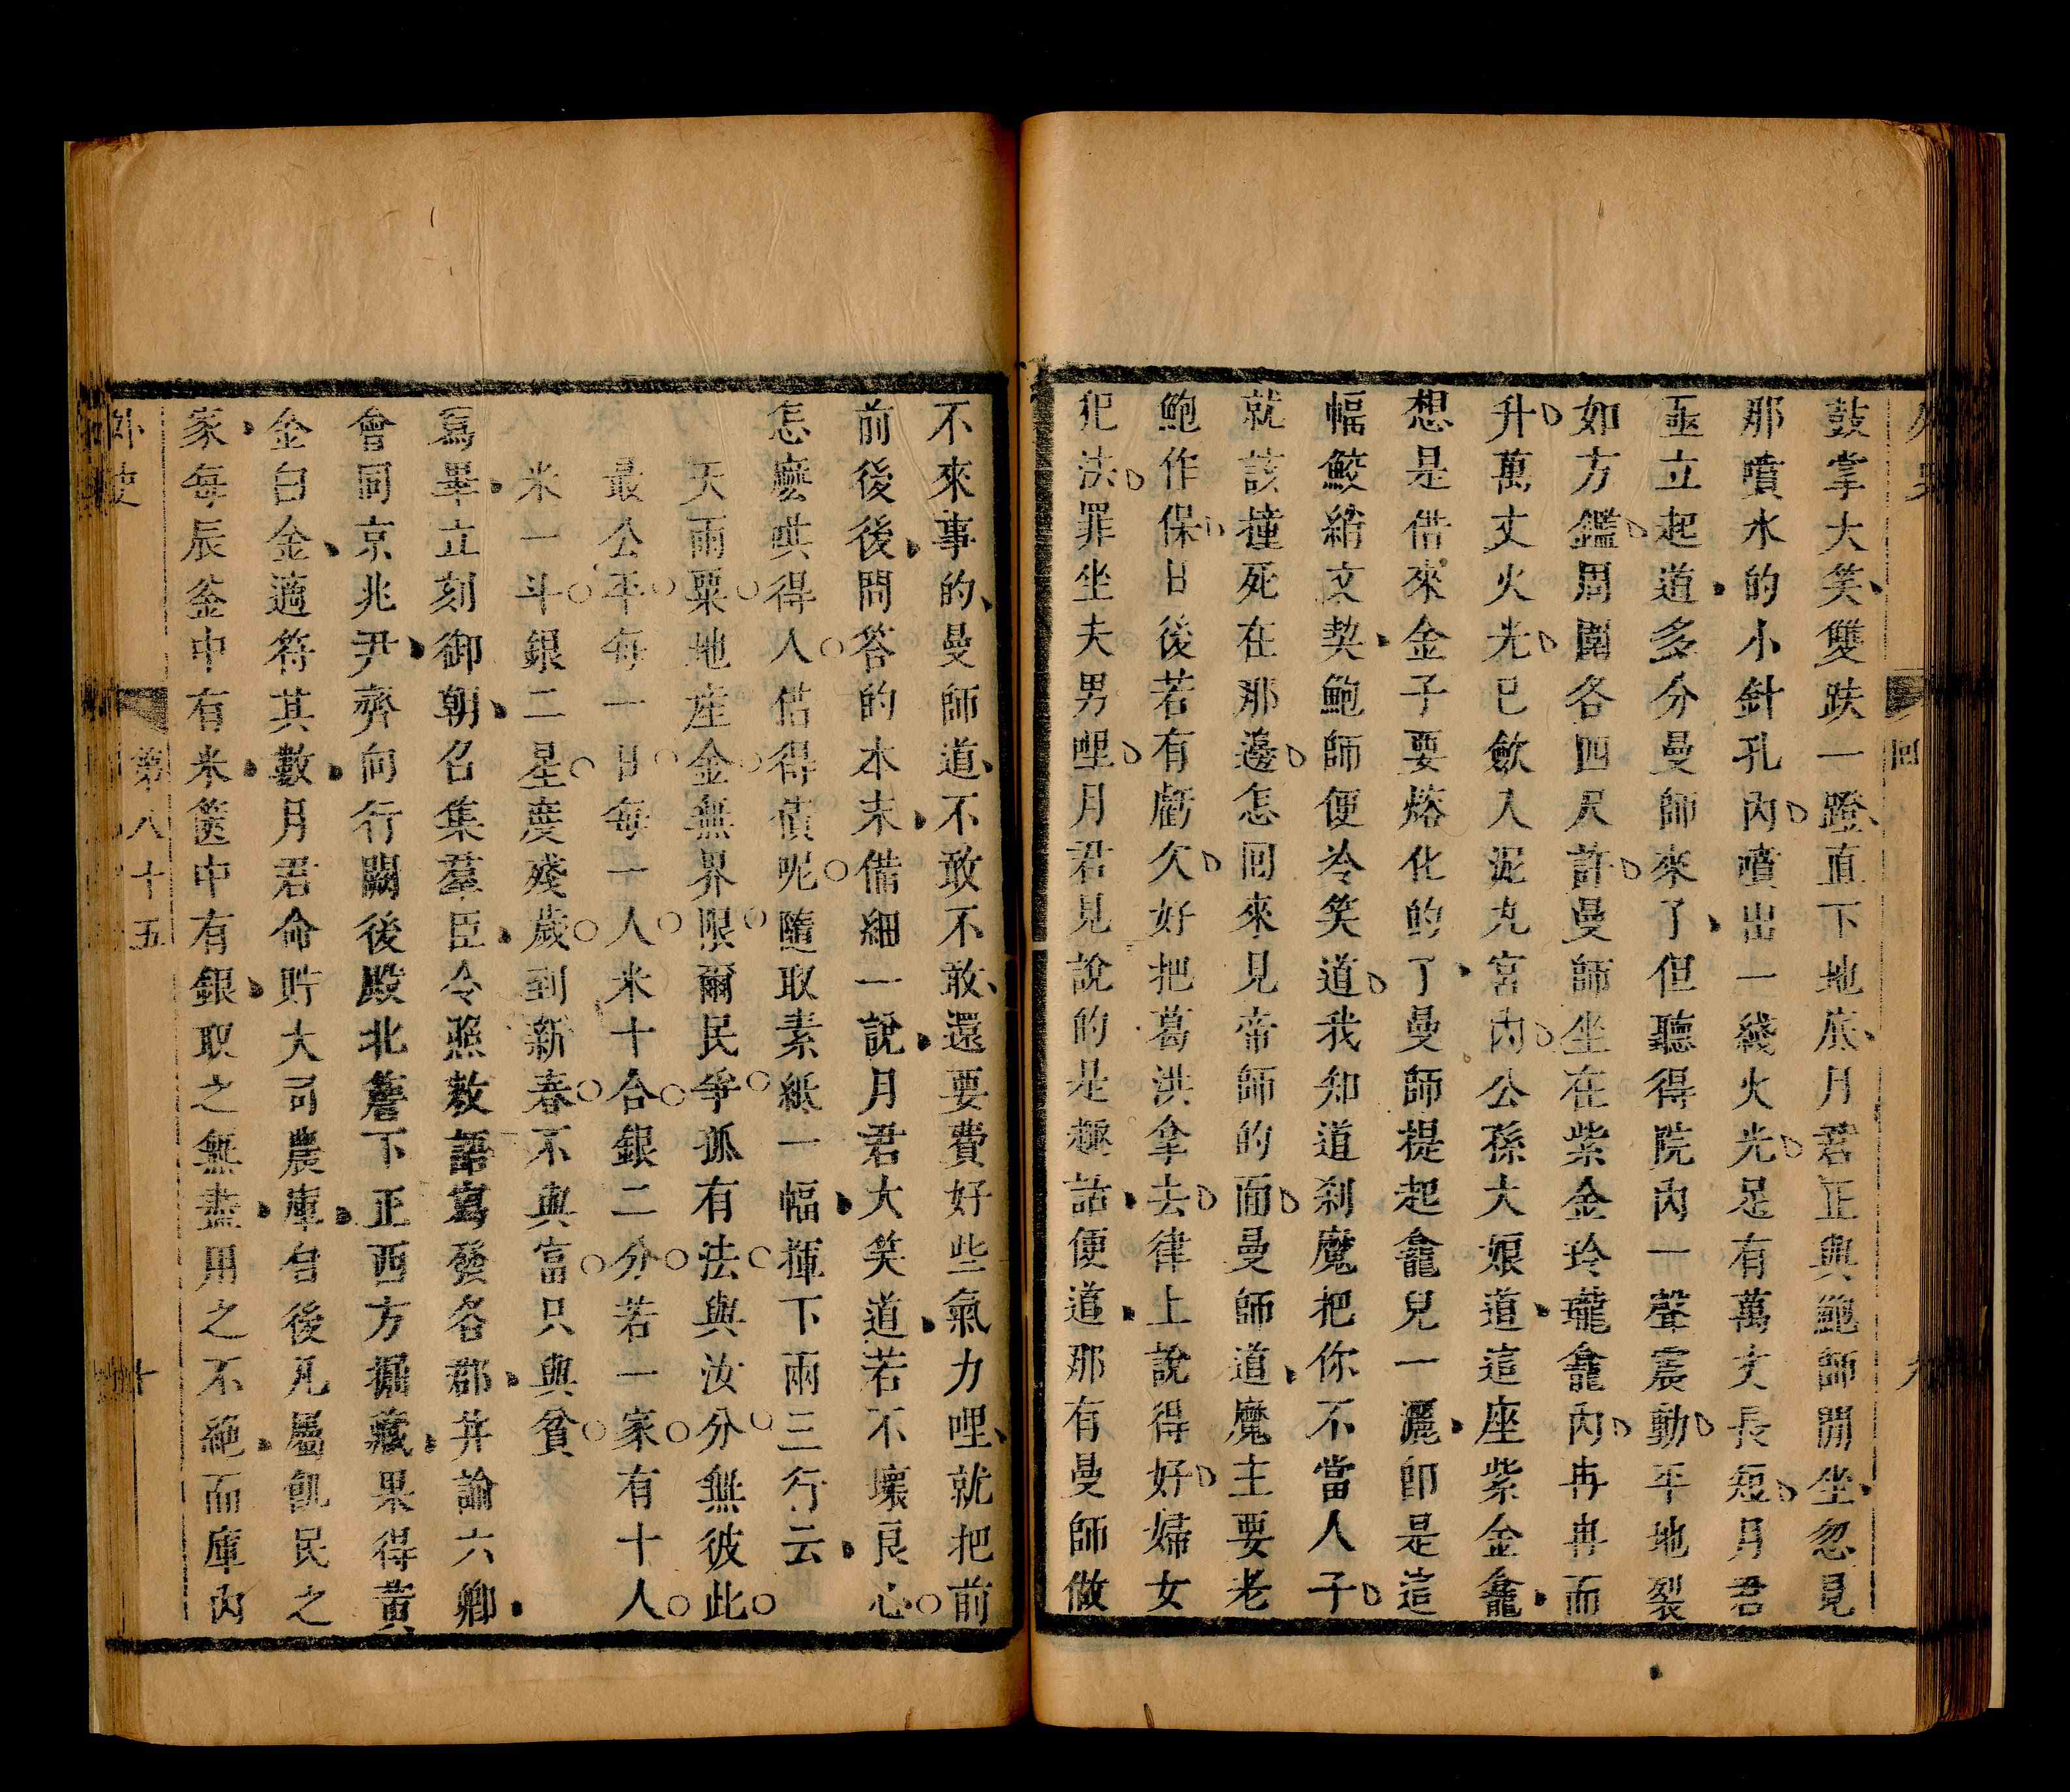 鼓掌大笑雙趺一蹬直下地底月君正與鮑師閒坐忽見
那噴水的小針孔內噴出一綫火光足有萬丈長短月君
亟立起道多分曼師來了但聽得院內一聲震動平地裂
如方鑑周圍各四尺許曼師坐在紫金玲瓏龕內冉冉而
升萬丈火光已斂入泥丸宮內公孫大娘道這座紫金龕
想是借來金子要熔化的了曼師提起龕兒一灑即是這
幅鮫綃文契鮑師便冷笑道我知道刹魔把你不當人子
就該撞死在那邊怎回來見帝師的面曼師道魔主要老
鮑作保日後若有虧欠好把葛洪拿去律上說得好婦女
犯法罪坐夫男哩月君見說的是趣話便道那有曼師做
不來事的曼師道不敢不敢還要費好些氣力哩就把前
前後後問答的本末備細一說月君大笑道若不壞良心
怎麼哄得人借得債呢隨取素紙一幅揮下兩三行云
天雨粟地產金無界限爾民爭孤有法與汝分無彼此
最公平每一日每一人米十合銀二分若一家有十人
米一斗銀二星度殘歲到新春不與富只與貧
寫畢立刻御朝召集羣臣令照敕語寫發各郡并諭六卿
會同京兆尹齊向行闕後殿北簷下正西方掘藏果得黃
金白金適符其數月君命貯大司農庫自後凡屬飢民之
家每辰釜中有米篋中有銀取之無盡用之不絕而庫內
外史 第八十五 十